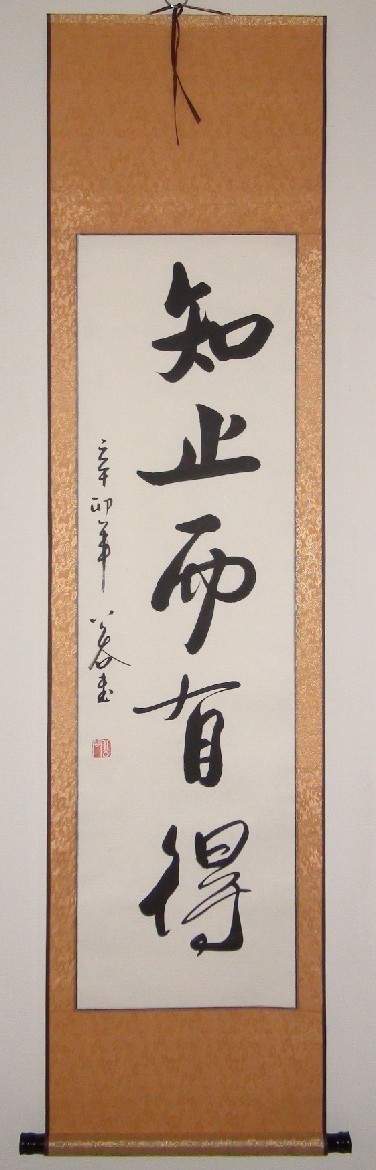 知止而有得
辛卯年 書